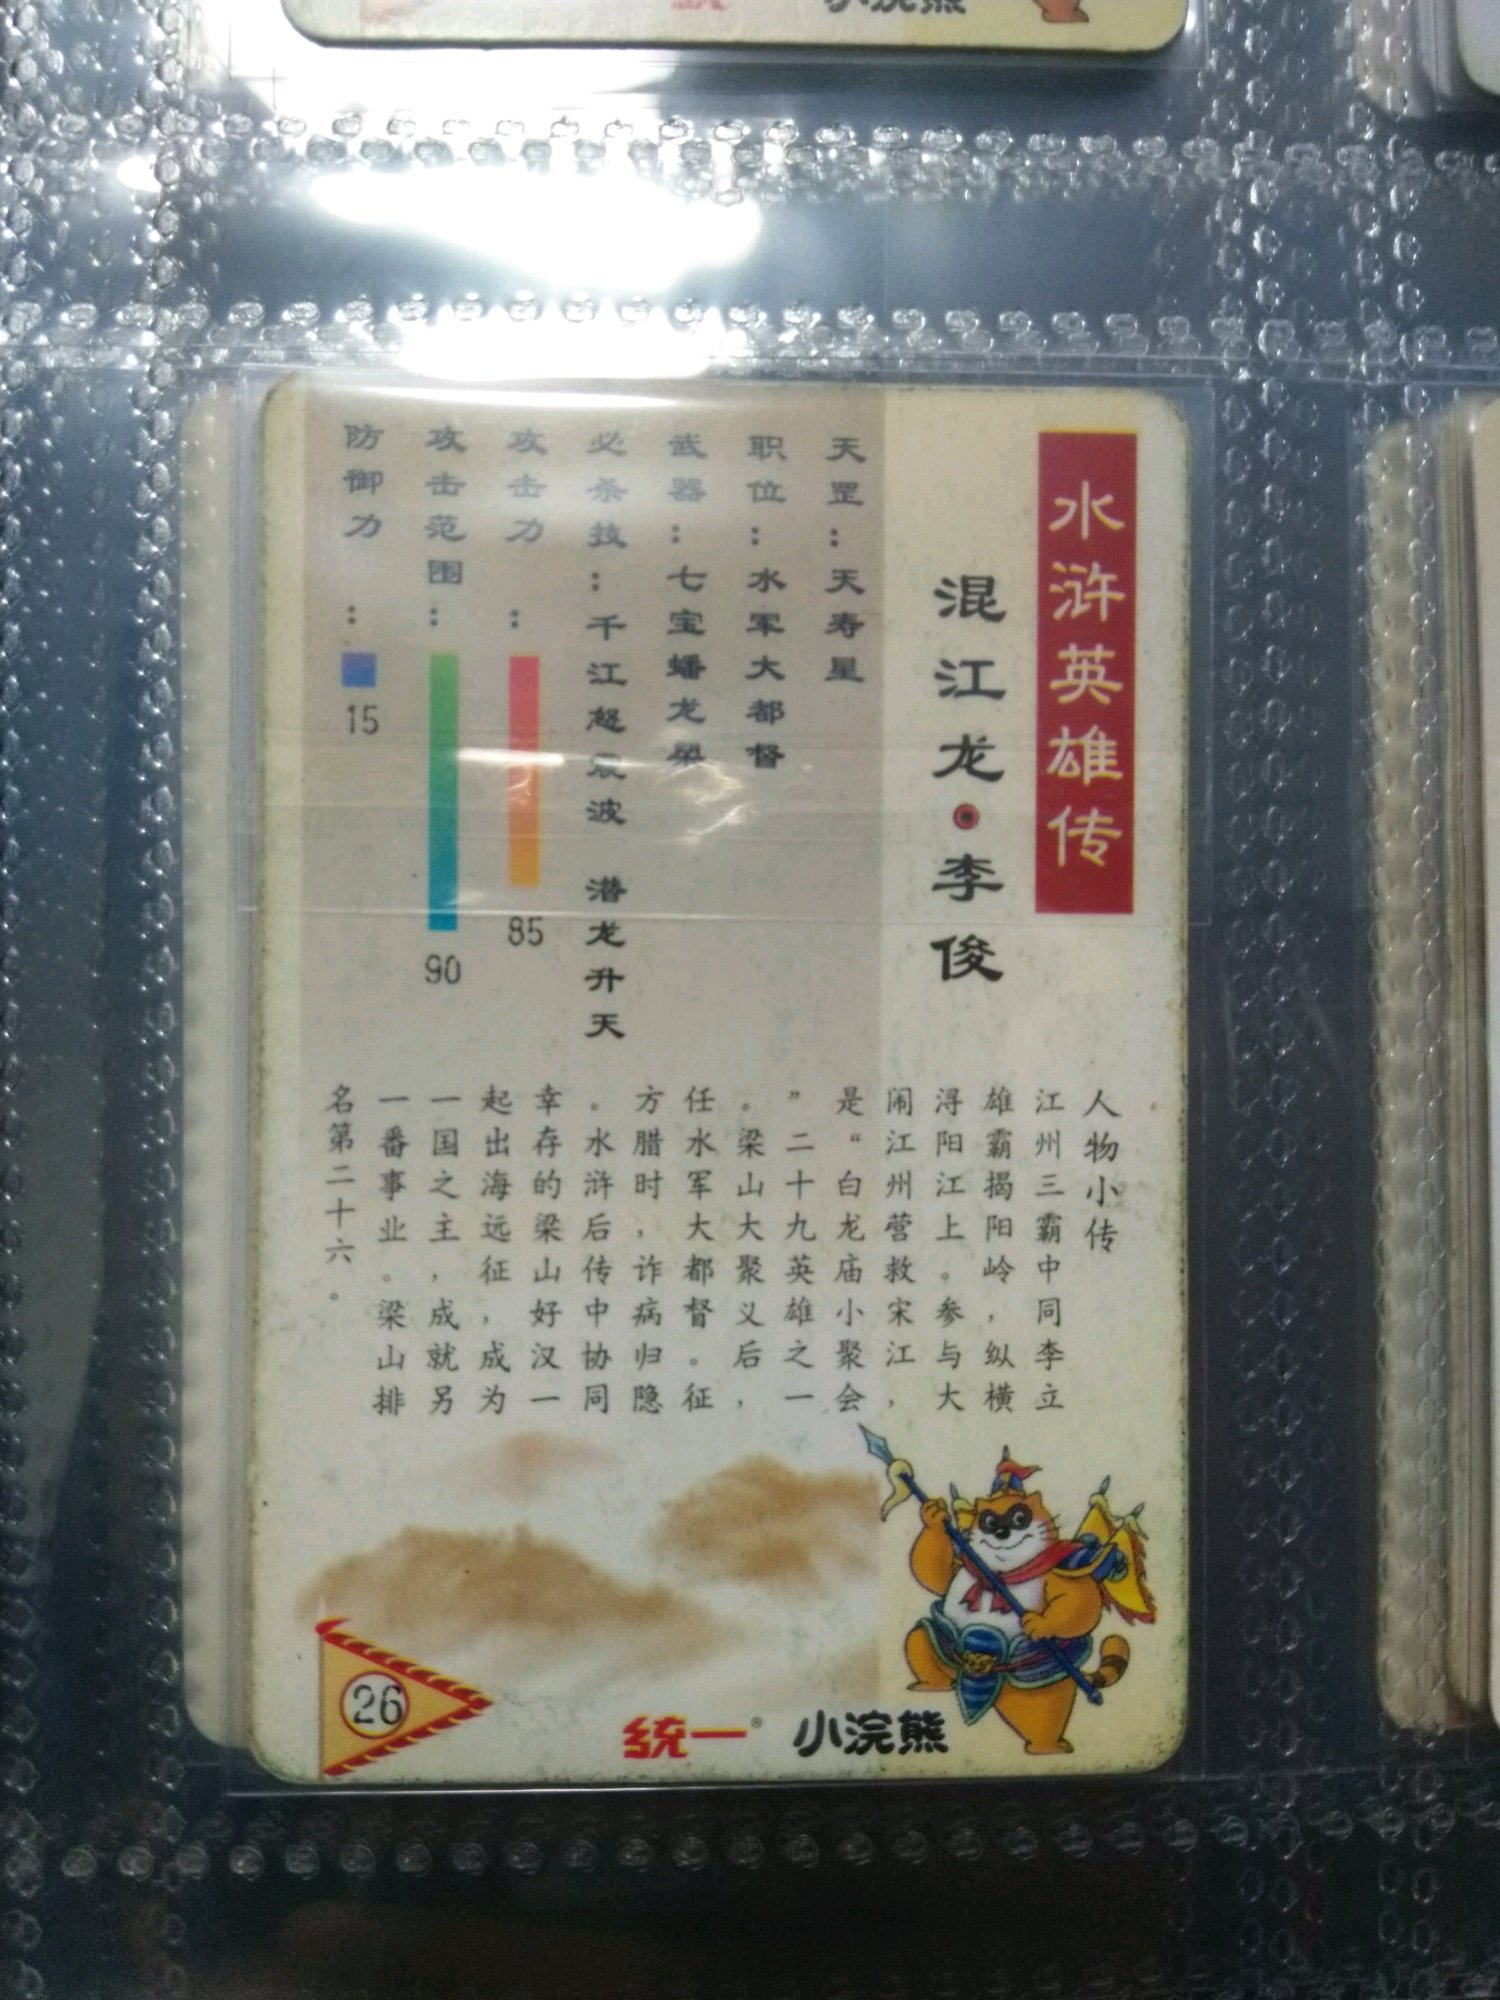 水浒英雄传
混江龙·李俊
天罡：天寿星
职位：水军大都督
武器：七宝蟠龙
必杀技：千江怒震波 潜龙升天
攻击力：85
攻击范围：90
防御力：15
人物小传
江州三霸中同李立
雄霸揭阳岭，纵横
浔阳江上。参与大
闹江州营救宋江，
是“白龙庙小聚会
”二十九英雄之一
。梁山大聚义后，
任水军大都督。征
方腊时，诈病归隐
。水浒后传中协同
幸存的梁山好汉一
起出海远征，成为
一国之主，成就另
一番事业。梁山排
名第二十六。
26
统一® 小浣熊